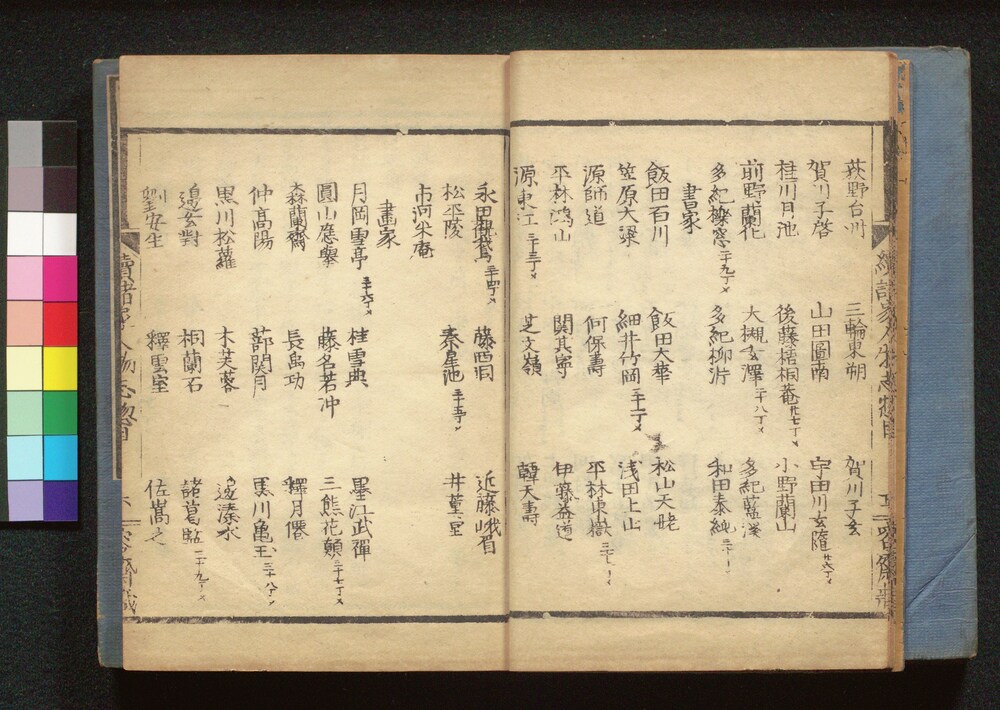 荻野台州 三輪東朔 賀川子玄
賀川子啓 山田圖南 宇田川玄隨
桂川月池 後藤梧桐菴 廿七丁メ 小野蘭山
前野蘭化 大槻玄澤 二十八丁メ 多紀藍渓
多紀櫟窓 二十九丁メ 多紀柳沜 和田泰純
書家
飯田石川 飯田大華 松山天姥
笠原大湶 細井竹岡 三十一丁メ 浅田上山
源師道 何保壽 平林東嶽
平林鴻山 關其寧 伊藤益道
源東江 三十三丁メ 芝文嶺 韓天壽
永田観鵞 三十四丁メ 藤西涯 近藤峨眉
松平陵 秦星池 三十五丁メ 井菫室
市河米庵
畫家
月岡雪亭 三十六丁メ 桂雪典 墨江武禪
圓山應擧 藤名若冲 三熊花顛 三十七丁メ
森蘭齋 長島功 釋月僊
仲髙陽 蔀関月 黒川亀玉 三十八丁メ
黒川松蘿 木芙蓉 邊溱水
邉玄對 桐蘭石 諸葛監 三十九丁メ
劉安生 釋雲室 佐嵩之
續諸家人物志惣目